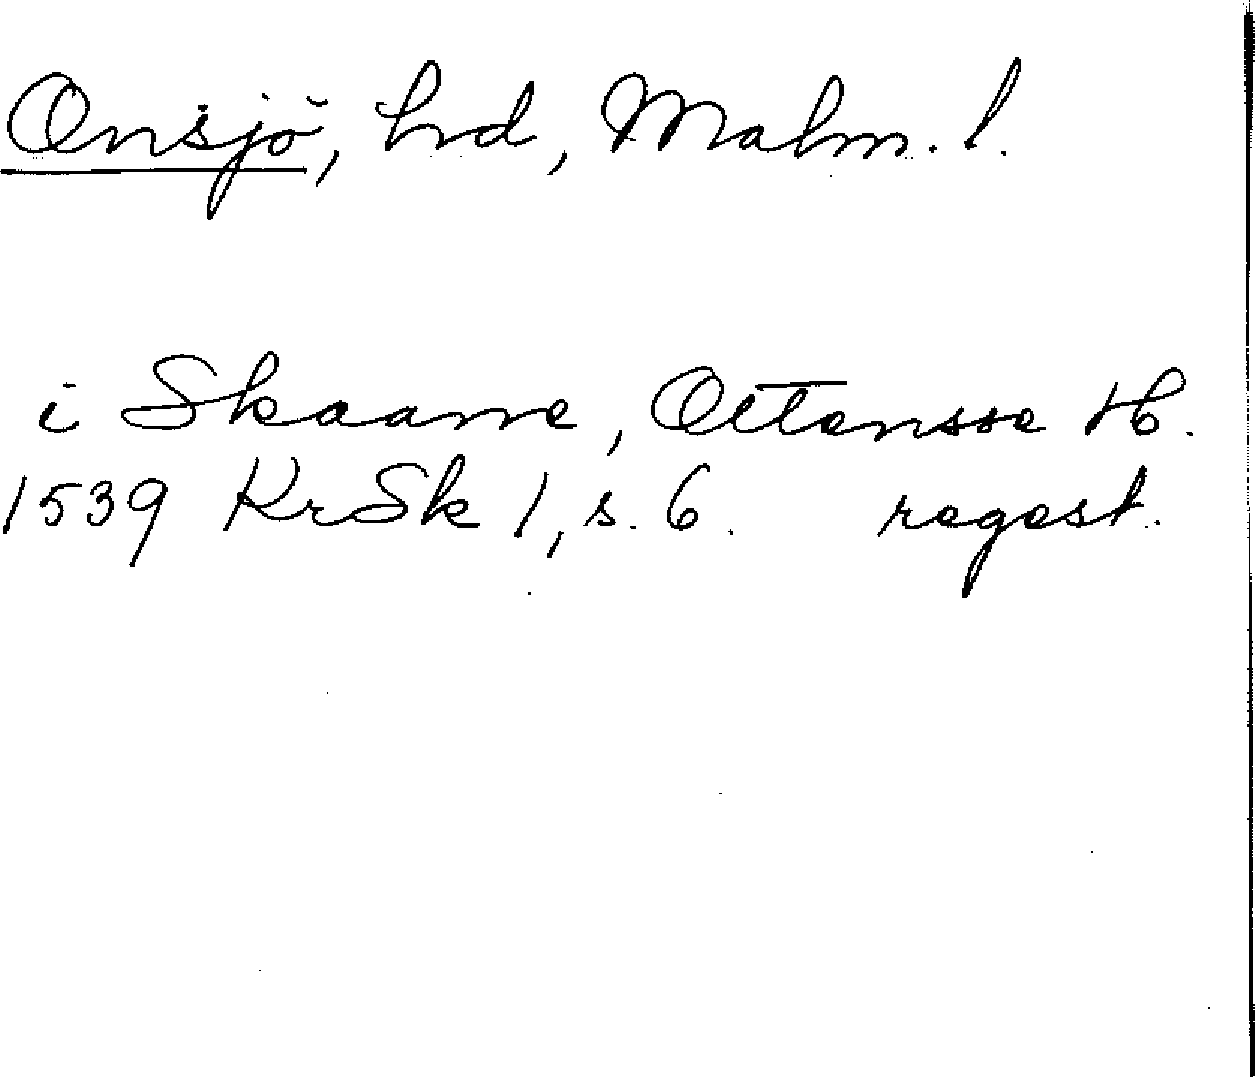 Onsjö, hrd, Malm. l.
i Skaane, Ottensse H.
1539 KrSk 1, s. 6. regest.